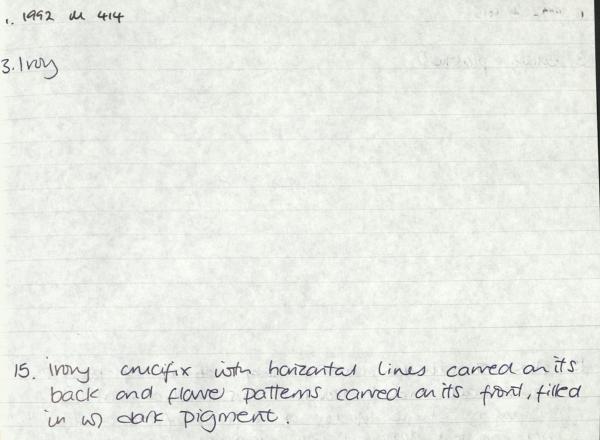 1. 1992 M 414
3. Ivory
15. Ivory crucifix with horizontal lines carved on its
back and flower patterns carved on its front, filled
in w) dark pigment.